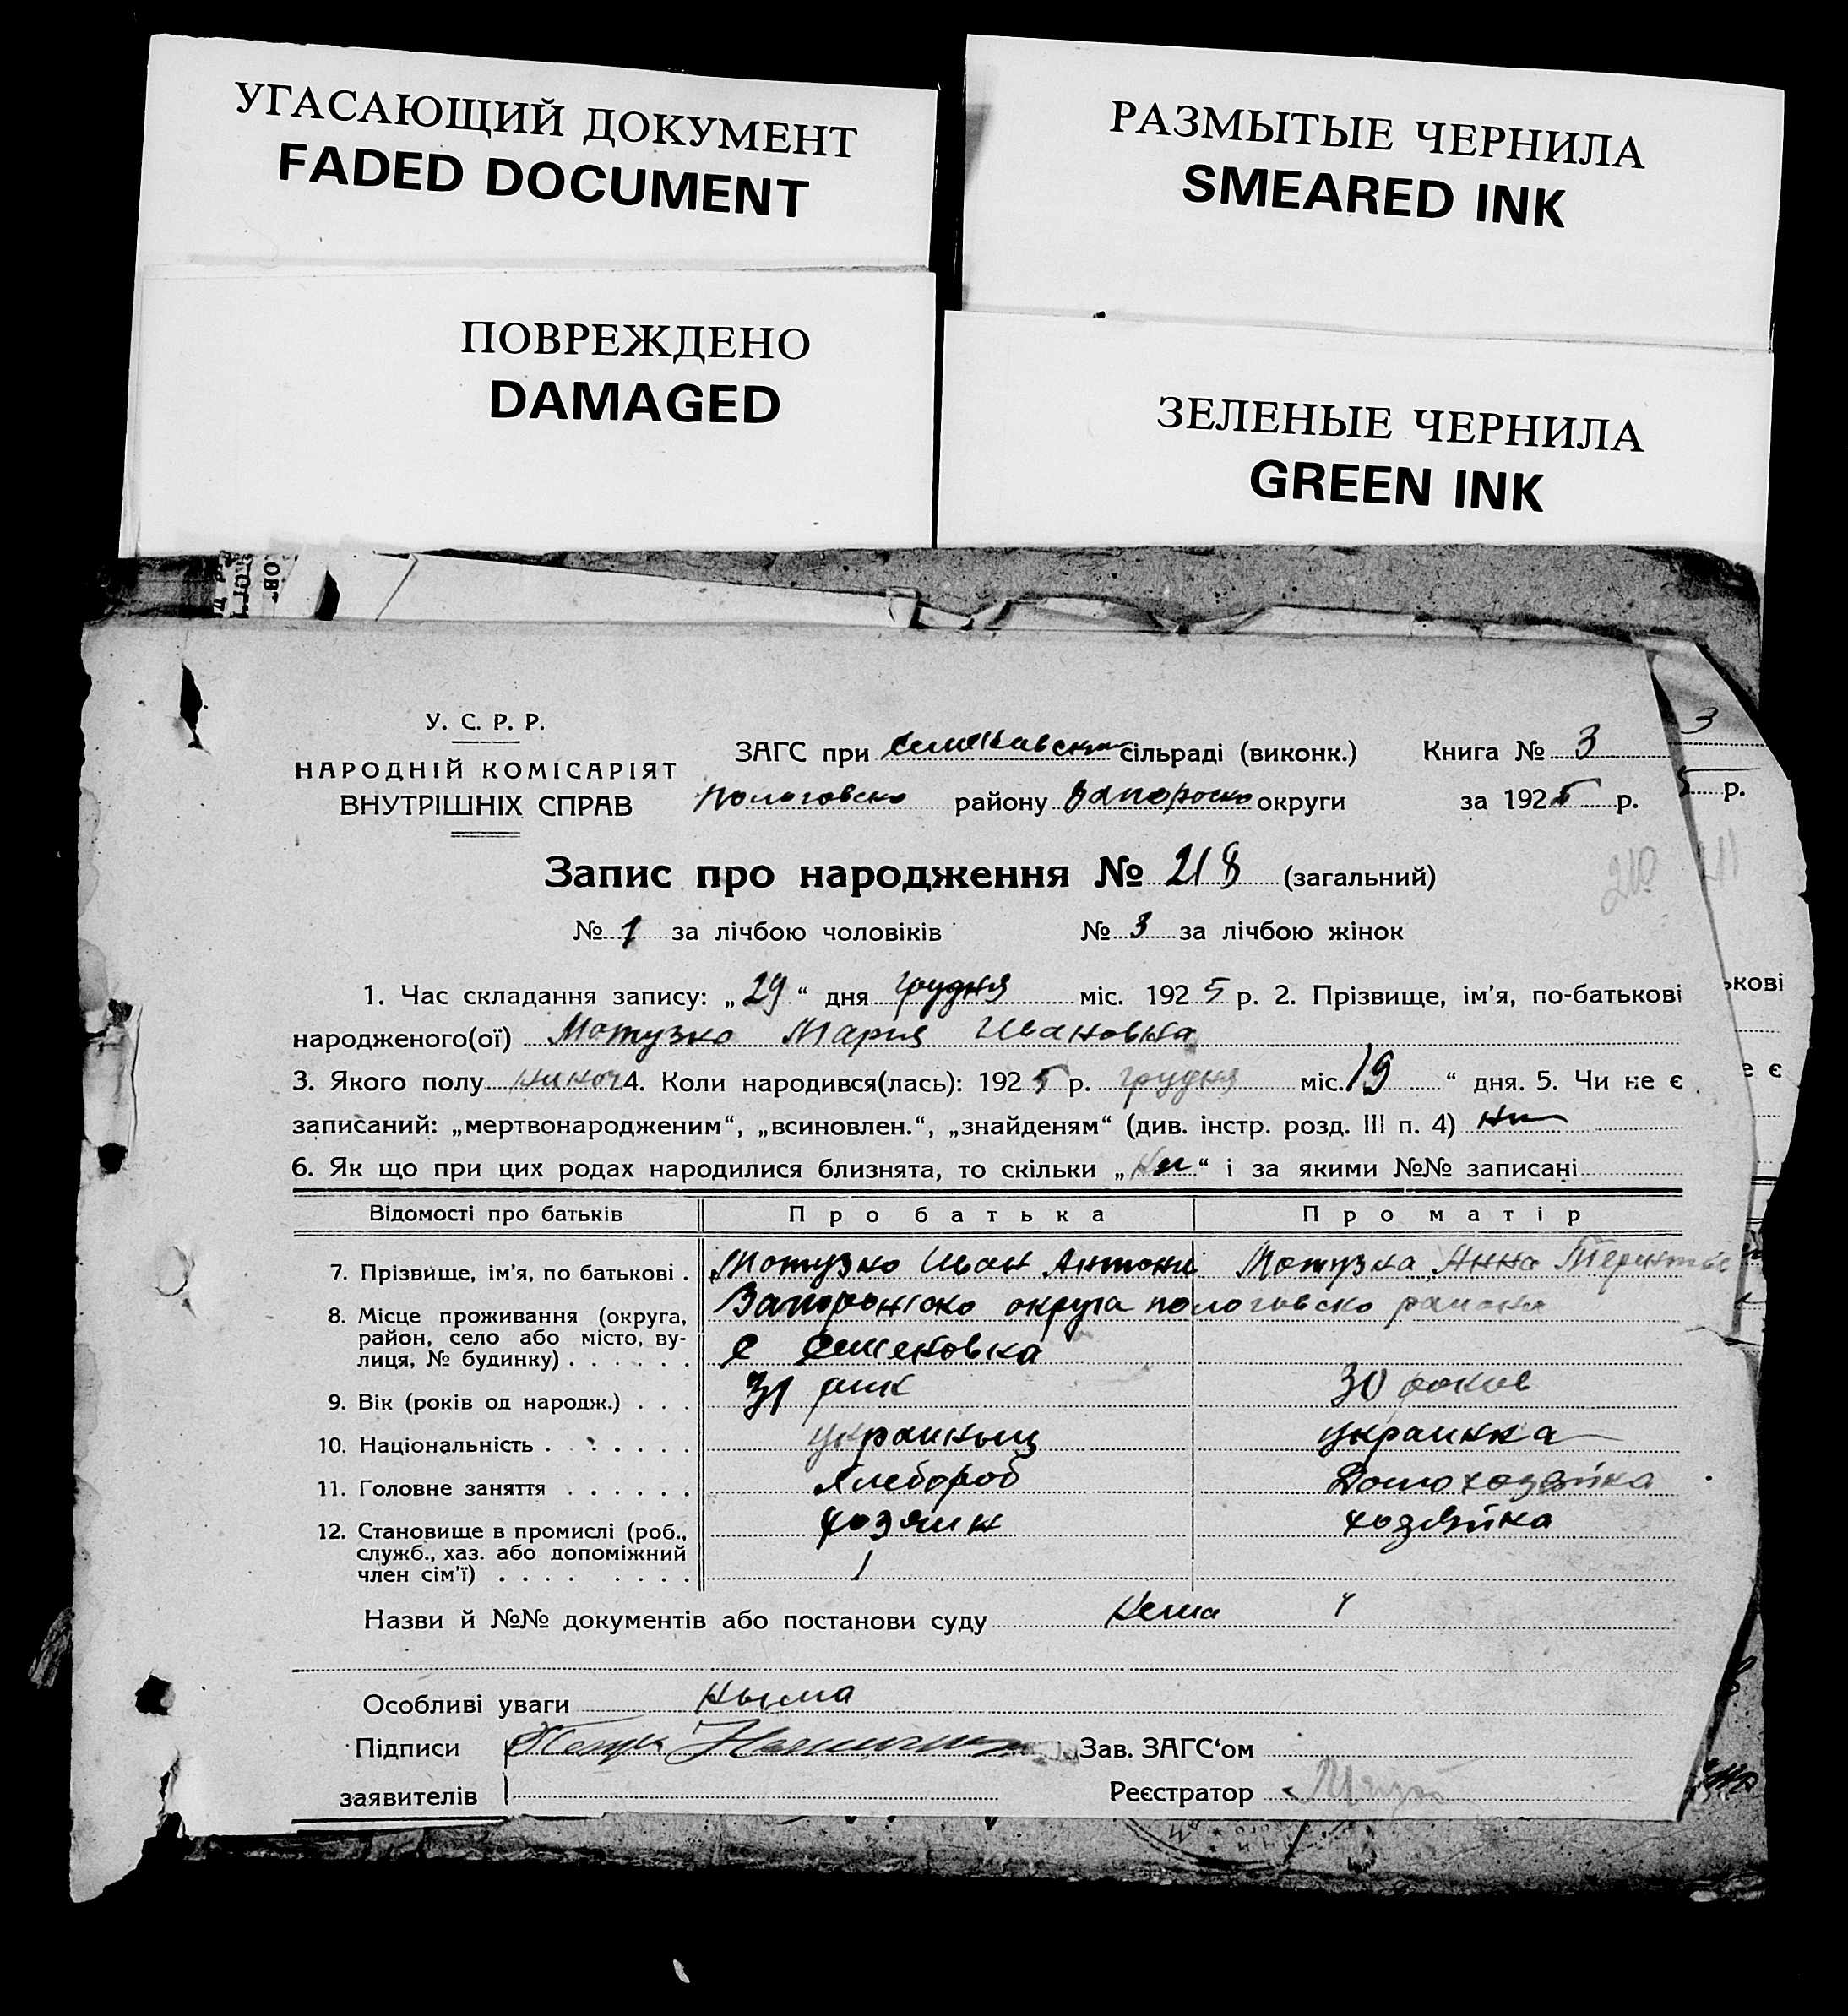 УГАСАЮЩИЙ ДОКУМЕНТ
FADED DOCUMENT
РАЗМЫТЫЕ ЧЕРНИЛА
SMEARED INK
ПОВРЕЖДЕНО
DAMAGED
ЗЕЛЕНЫЕ ЧЕРНИЛА
GREEN INK
У. С. Р. Р.
НАРОДНІЙ КОМІСАРІЯТ
ВНУТРІШНІХ СПРАВ
ЗАГС при сільраді (виконк.) Книга № 3
Пологовско району Запороско округи за 1925 р.
Запис про народження № 218 (загальний)
№ за лічбою чоловіків № 3 за лічбою жінок
1. Час складання запису: „29“ дня грудня міс. 1925 р. 2. Прізвище, ім'я, по-батькові
народженого(ої) Мотузко Мария Ивановна
3. Якого полу 4. Коли народився(лась): 1925 р. грудня міс. 19 “ дня. 5. Чи не є
записаний: „мертвонародженим“, „всиновлен.“, „знайденям“ (див. інстр. розд. III п. 4) ни
6. Як що при цих родах народилися близнята, то скільки „ни“ і за якими №№ записані
Відомості про батьків Про батька Про матір
7. Прізвище, ім'я, по батькові . Мотузко Иван Антони Мотузка Анна
8. Місце проживання (округа, район, село або місто, вулиця, № будинку) . . . . . . Запорожско округа пологовско района
с Семеновка
9. Вік (років од народж.) . . . 31 рик 30 роков
10. Національність . . . . . . украиныц украинка
11. Головне заняття . . . . . . Хлебороб Домохозяйка
12. Становище в промислі (роб., служб., хаз. або допоміжний член сім'ї) . . . . . . . . хозяин хозяйка
Назви й №№ документів або постанови суду Нема
Особливі уваги Ныма
Підписи Зав. ЗАГС‘ом
заявителів Реєстратор